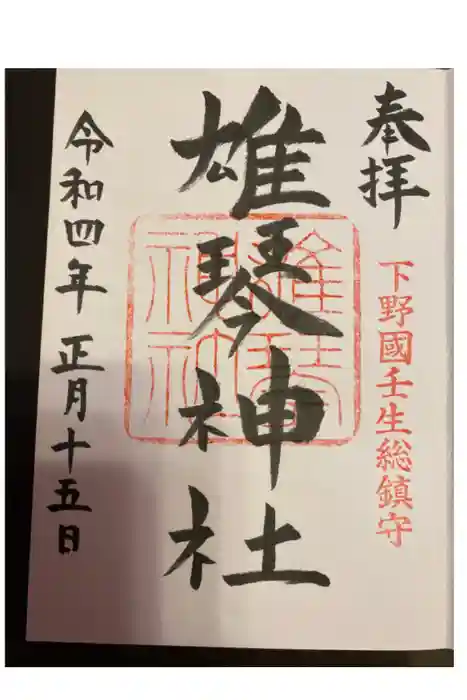 奉拝
下野國壬生総鎮守
雄琴神社
雄琴
神社
令和四年 正月十五日